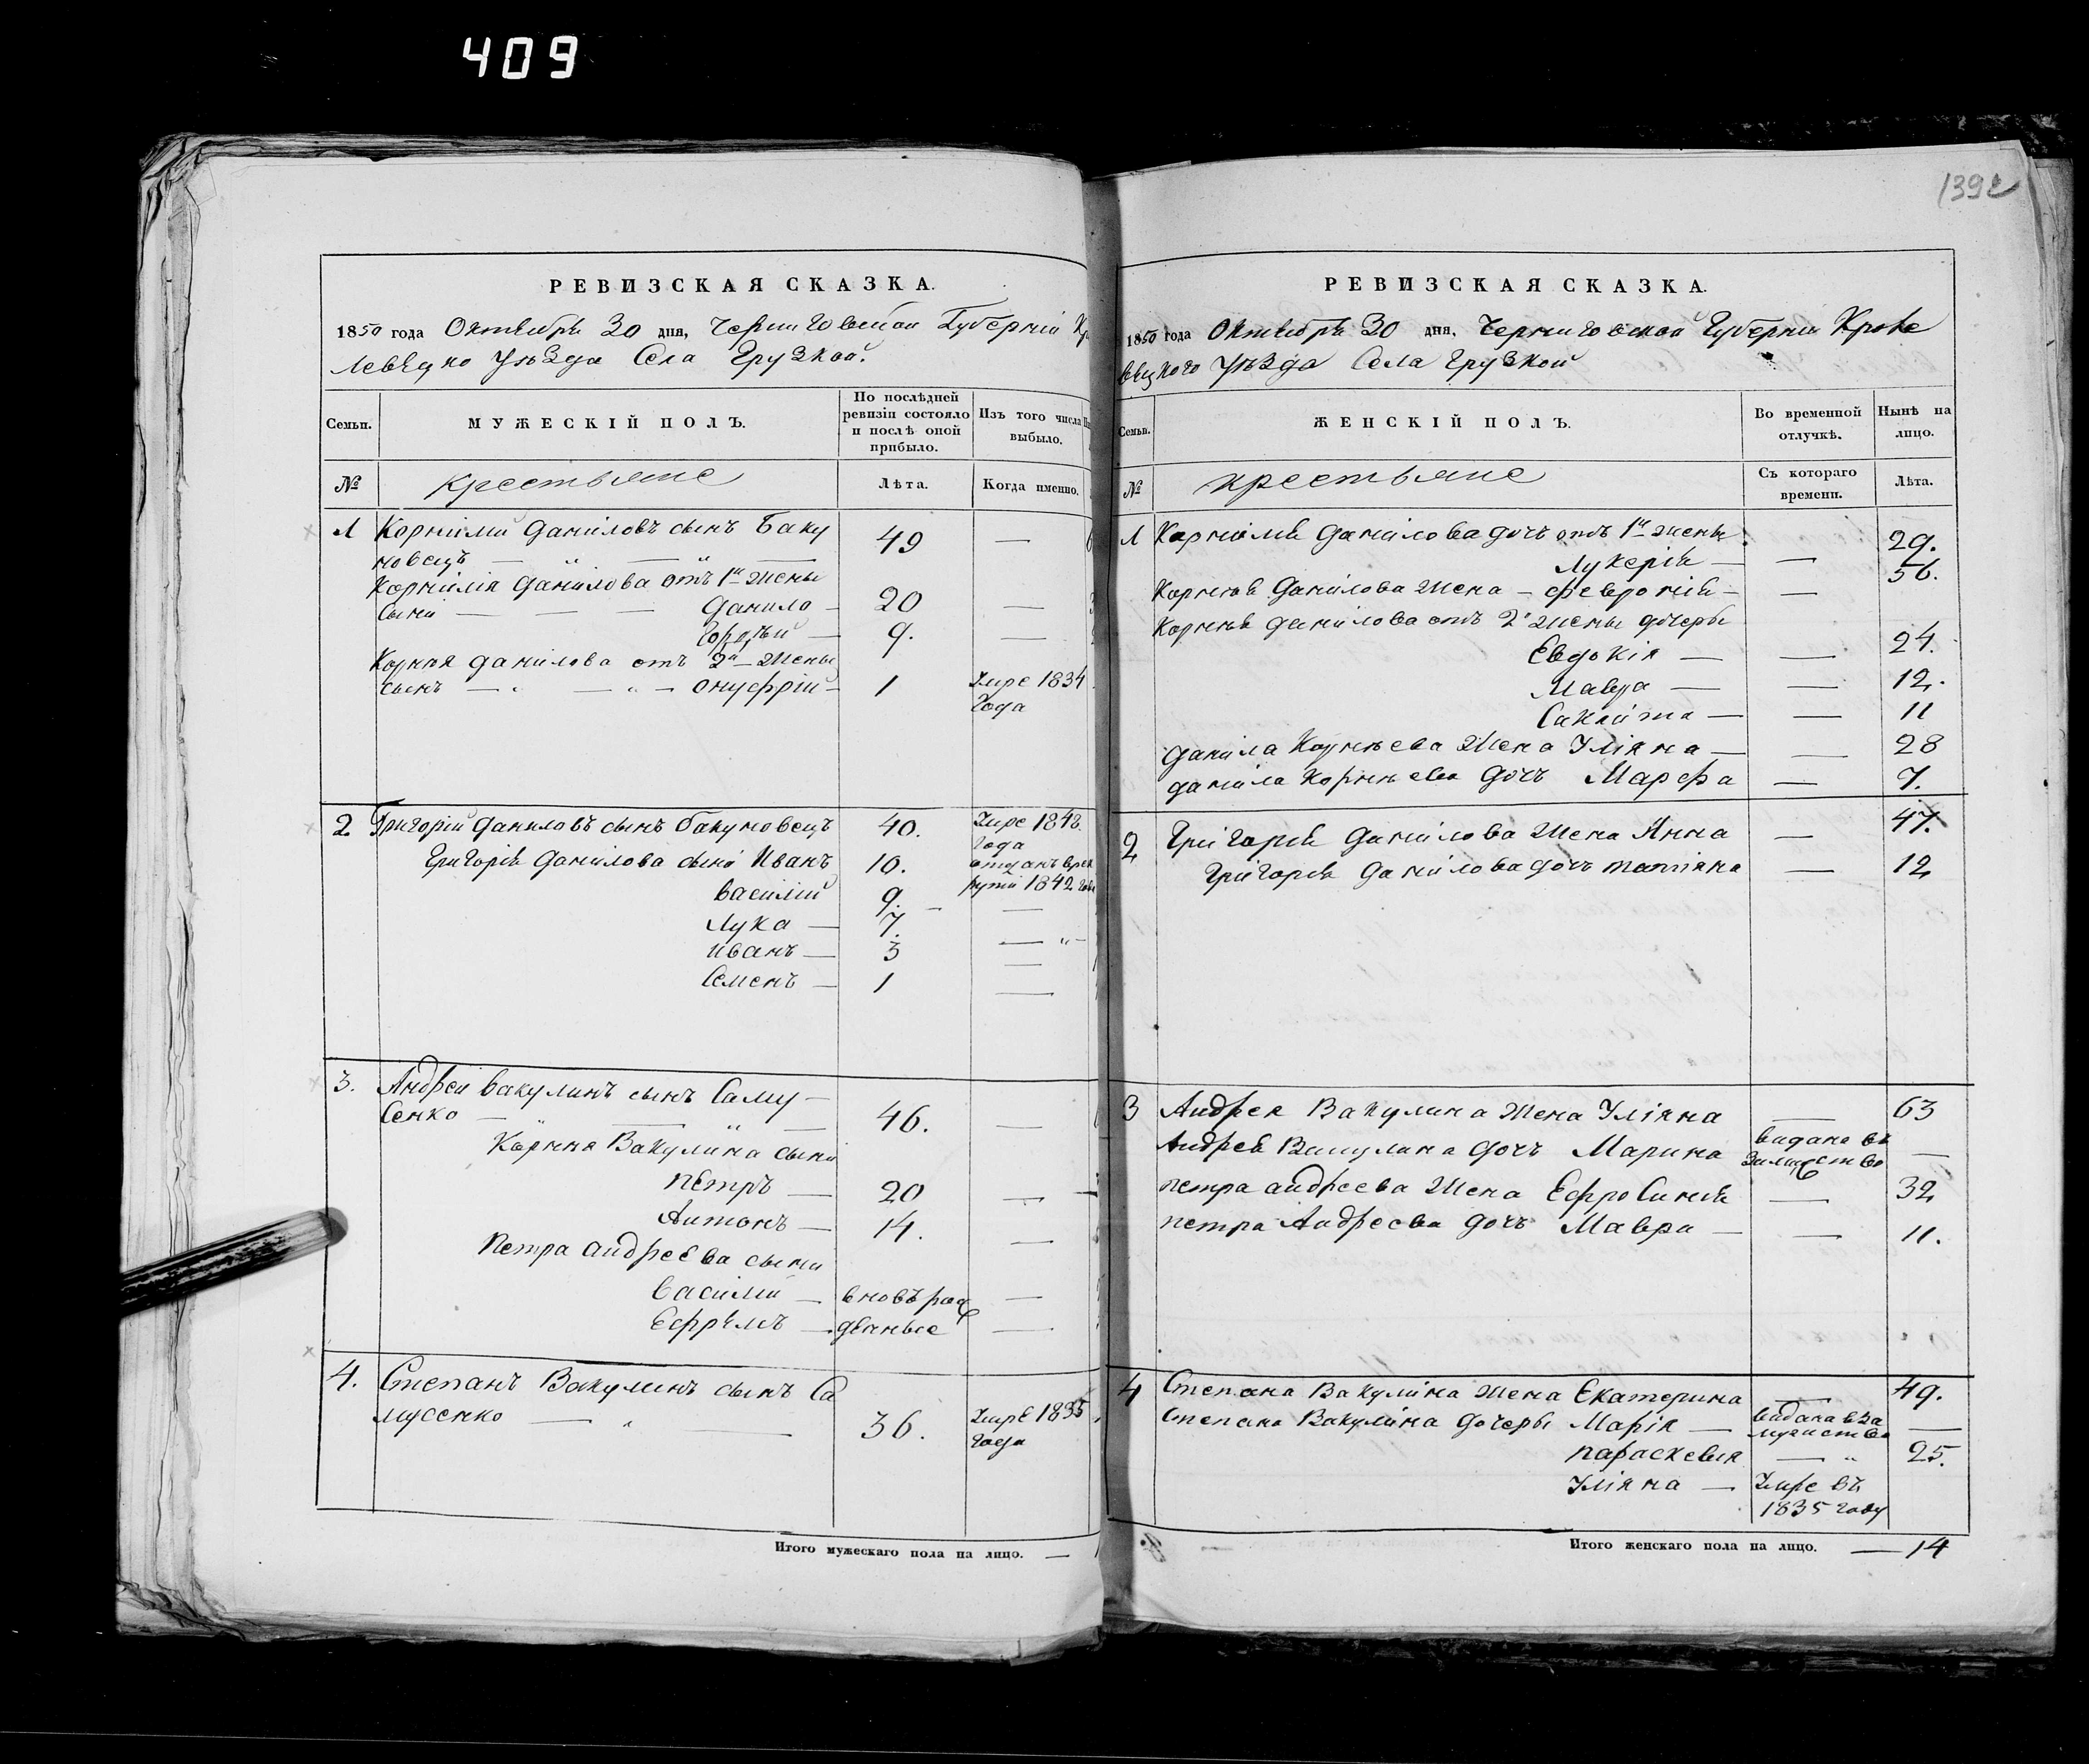 409
1392
РЕВИЗСКАЯ СКАЗКА.
1850 года Октября 30 дня, Черниговской Губерніи Кро
левецко Уѣзда Села Грузкой.
Семьи. МУЖЕСКІЙ ПОЛЪ. По послѣдней ревизіи состояло и послѣ оной прибыло. Изъ того числа выбыло.
№ крестьяне Лѣта. Когда именно.
1 Корнилій Даниловъ сынъ Баку
новецъ — 49 —
Корнилія Данилова отъ 1й жены
сыни — Данило — 20 —
Гордѣй — 9. —
Корнѣя Данилова отъ 2й жены
сынъ — Онуфрій — 1 Умре 1834
Года
2 Григорій Даниловъ сынъ Бакуновецъ 40. Умре 1848.
года
Григорія Данилова сыны Иванъ 10. отданъ врек
рути 1842 года
Василій 9. —
Лука — 7. —
Иванъ — 3 —
Семенъ — 1 —
3. Андрей Вакулинъ сынъ Саму-
сенко — 46. —
Корнѣя Вакулина сыни
Петръ — 20 —
Антонъ — 14. —
Петра Андреева сыни
Василій — вновь рож —
Ефремъ — денные —
4. Степанъ Вакулинъ сынъ Са
мусенко — 36. Умре 1835
Года
Итого мужескаго пола на лицо. —
РЕВИЗСКАЯ СКАЗКА.
1850 года Октября 30 дня, Черниговской Губерніи Кроле
вецкого Уѣзда Села Грузкой
Семьи. ЖЕНСКІЙ ПОЛЪ. Во временной отлучкѣ. Нынѣ на лицо.
№ крестьяне Съ котораго времени. Лѣта.
1 Корнилія Данилова дочь отъ 1й жены
Лукерія — — 29.
Корнѣя Данилова жена — Февронія — — 56.
Корнѣя Данилова отъ 2й жены дочеры
Евдокія — — 24.
Мавра — — 12.
— — 11
Данила Корнѣева жена Уліяна — — 28
Данила Корнѣева дочь Марфа — 7.
2 Григорія Данилова жена Анна — 47.
Григорія Данилова дочь Татіяна — 12
3 Андрея Вакулина жена Уліяна — 63
Андрея Вакулина дочь Марина видана въ
замужство —
Петра Андреева жена Ефросинія — 32
Петра Андреева дочь Мавра — — 11.
4 Степана Вакулина жена Екатерина — 49.
Степана Вакулина дочеры Марія — видана вза
мужство —
Параскевія — 25.
Уліяна — Умре въ
1835 году
Итого женскаго пола на лицо. — 14